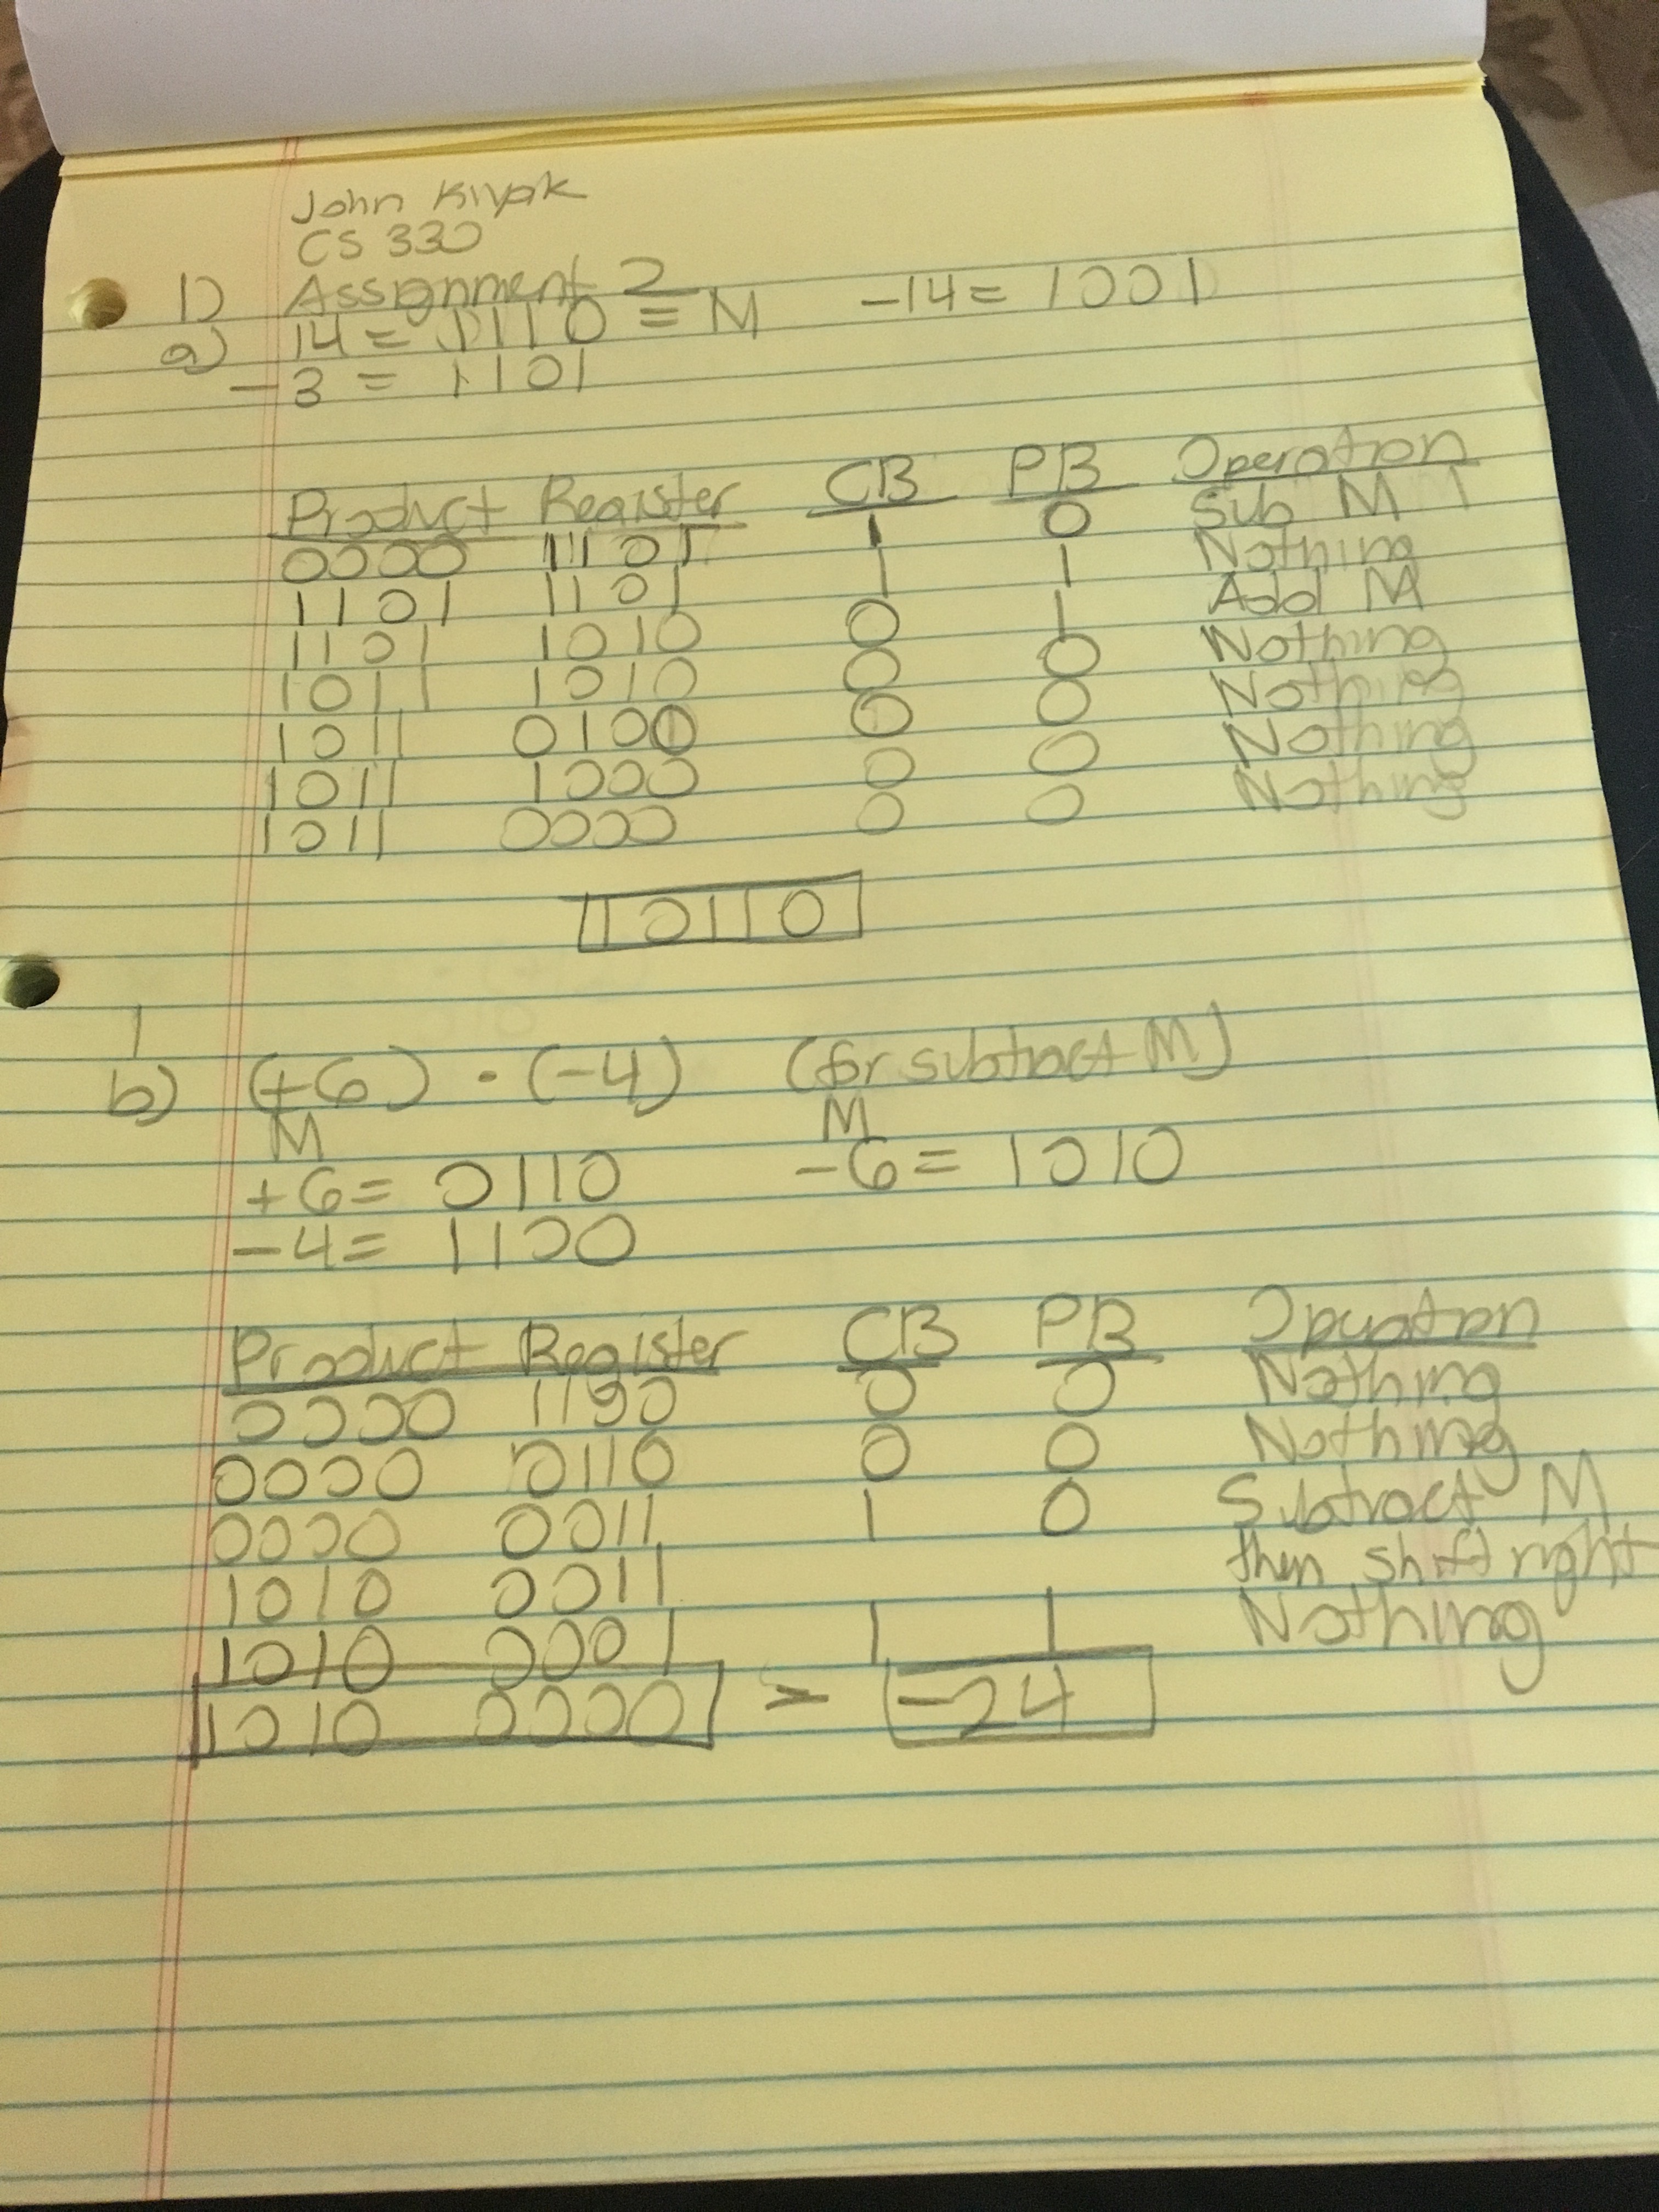 John Kiypk
CS 330
1) Assignment 2
a) 14 = 1110 = M -14 = 1001
-3 = 1101
Product Register CB PB Operation
0000 1101 1 0 Sub M
1101 1101 1 1 Nothing
1101 1010 0 1 Add M
1011 1010 0 0 Nothing
1011 0100 0 0 Nothing
1011 1000 0 0 Nothing
1011 0000 0 0 Nothing
110110
1
b) (+6) · (-4) (for subtract M)
M M
+6 = 0110 -6 = 1010
-4 = 1100
Product Register CB PB Operation
0000 1100 0 0 Nothing
0000 0110 0 0 Nothing
0000 0011 1 0 Subtract M
1010 0011 then shift right
1010 0001 1 1 Nothing
1010 0000 > -24